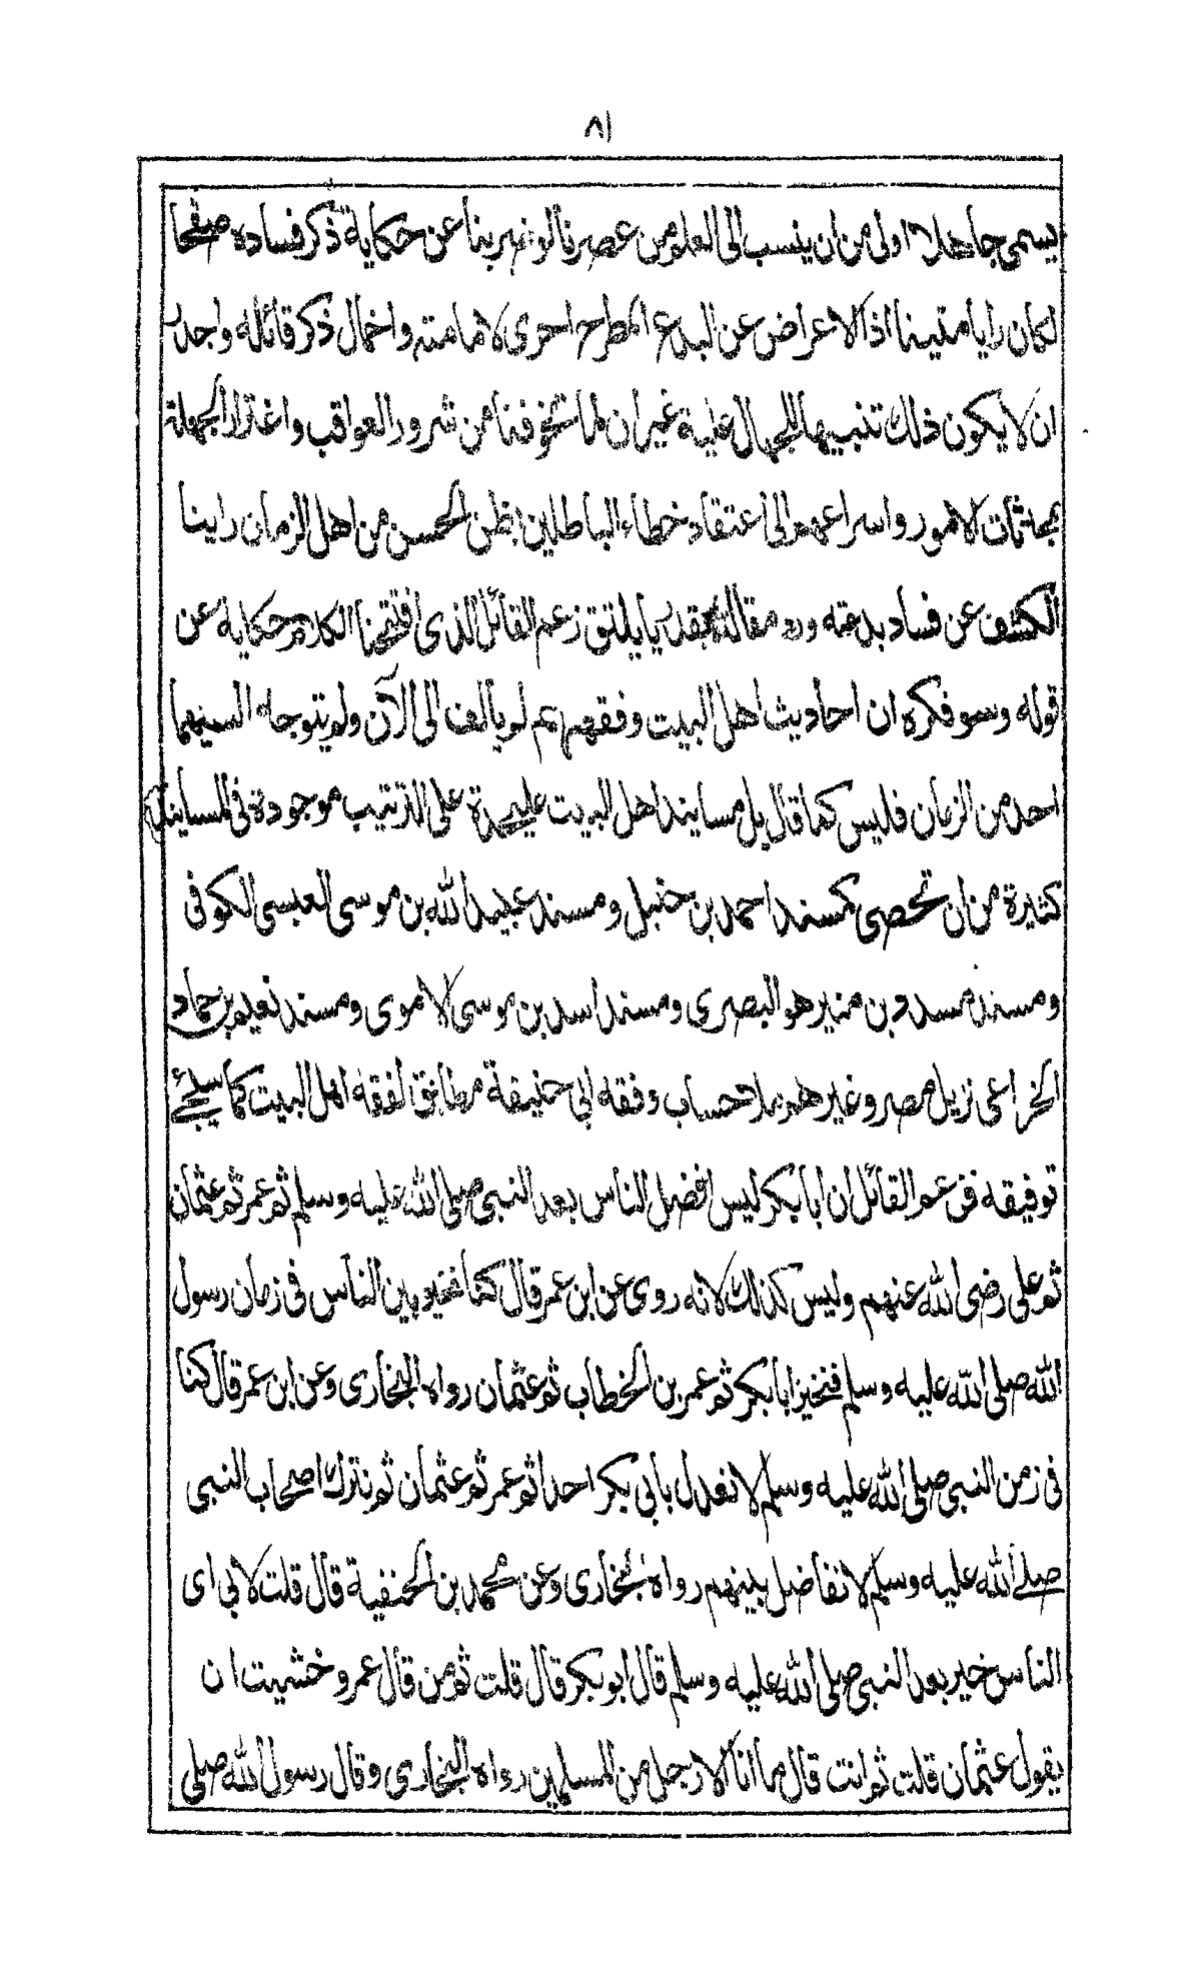 ٨١
يسمى جاهلا اولى من ان ينسب الى العلم من عصرنا لو ضربنا عن حكاية ذكر فساده صفحا
لكان رايا متينا اذ الاعراض عن البدع المطرح احرى لاماتته واخمال ذكر قائله واجدر
ان لا يكون ذلك تنبيها للجهال عليه غير ان لما تخوفنا من شرور العواقب واغترار الجهلة
بمحدثات الامور واسراعهم الى اعتقاد خطاء الباطلين بظن الحسن من اهل الزمان راينا
الكشف عن فساد بدعته ورد مقالته بقدر ما يليق زعم القائل الذى افتتحنا الكلام حكاية عن
قوله وسو فكره ان احاديث اهل البيت وفقههم لم يالف الى الآن ولم يتوجه اليهما
احد من الزمان فليس كما قال بل مسانيد اهل البيت عليحدة على الترتيب موجودة فى المسانيد
كثيرة من ان تحصى كمسند احمد بن حنبل ومسند عبيد الله بن موسى العبسى الكوفى
ومسند مسدد بن منير هو البصرى ومسند اسد بن موسى الاموى ومسند نعيم بن حماد
الخزاعى نزيل مصر وغيرهم بلا حساب وفقه ابى حنيفة مطابق لفقه اهل البيت كما سيجئ
توفيقه فزعم القائل ان ابا بكر ليس افضل الناس بعد النبى صلى الله عليه وسلم ثم عمر ثم عثمان
ثم على رضى الله عنهم وليس كذلك لانه روى عن ابن عمر قال كنا نخير بين الناس فى زمان رسول
الله صلى الله عليه وسلم فنخير ابا بكر ثم عمر بن الخطاب ثم عثمان رواه البخارى وعن ابن عمر قال كنا
فى زمن النبى صلى الله عليه وسلم لا نعدل بابى بكر احدا ثم عمر ثم عثمان ثم نترك اصحاب النبى
صلى الله عليه وسلم لا نفاضل بينهم رواه البخارى وعن محمد بن الحنفية قال قلت لابى اى
الناس خير بعد النبى صلى الله عليه وسلم قال ابو بكر قال قلت ثم من قال عمر وخشيت ان
يقول عثمان قلت ثم انت قال ما انا الا رجل من المسلمين رواه البخارى وقال رسول الله صلى